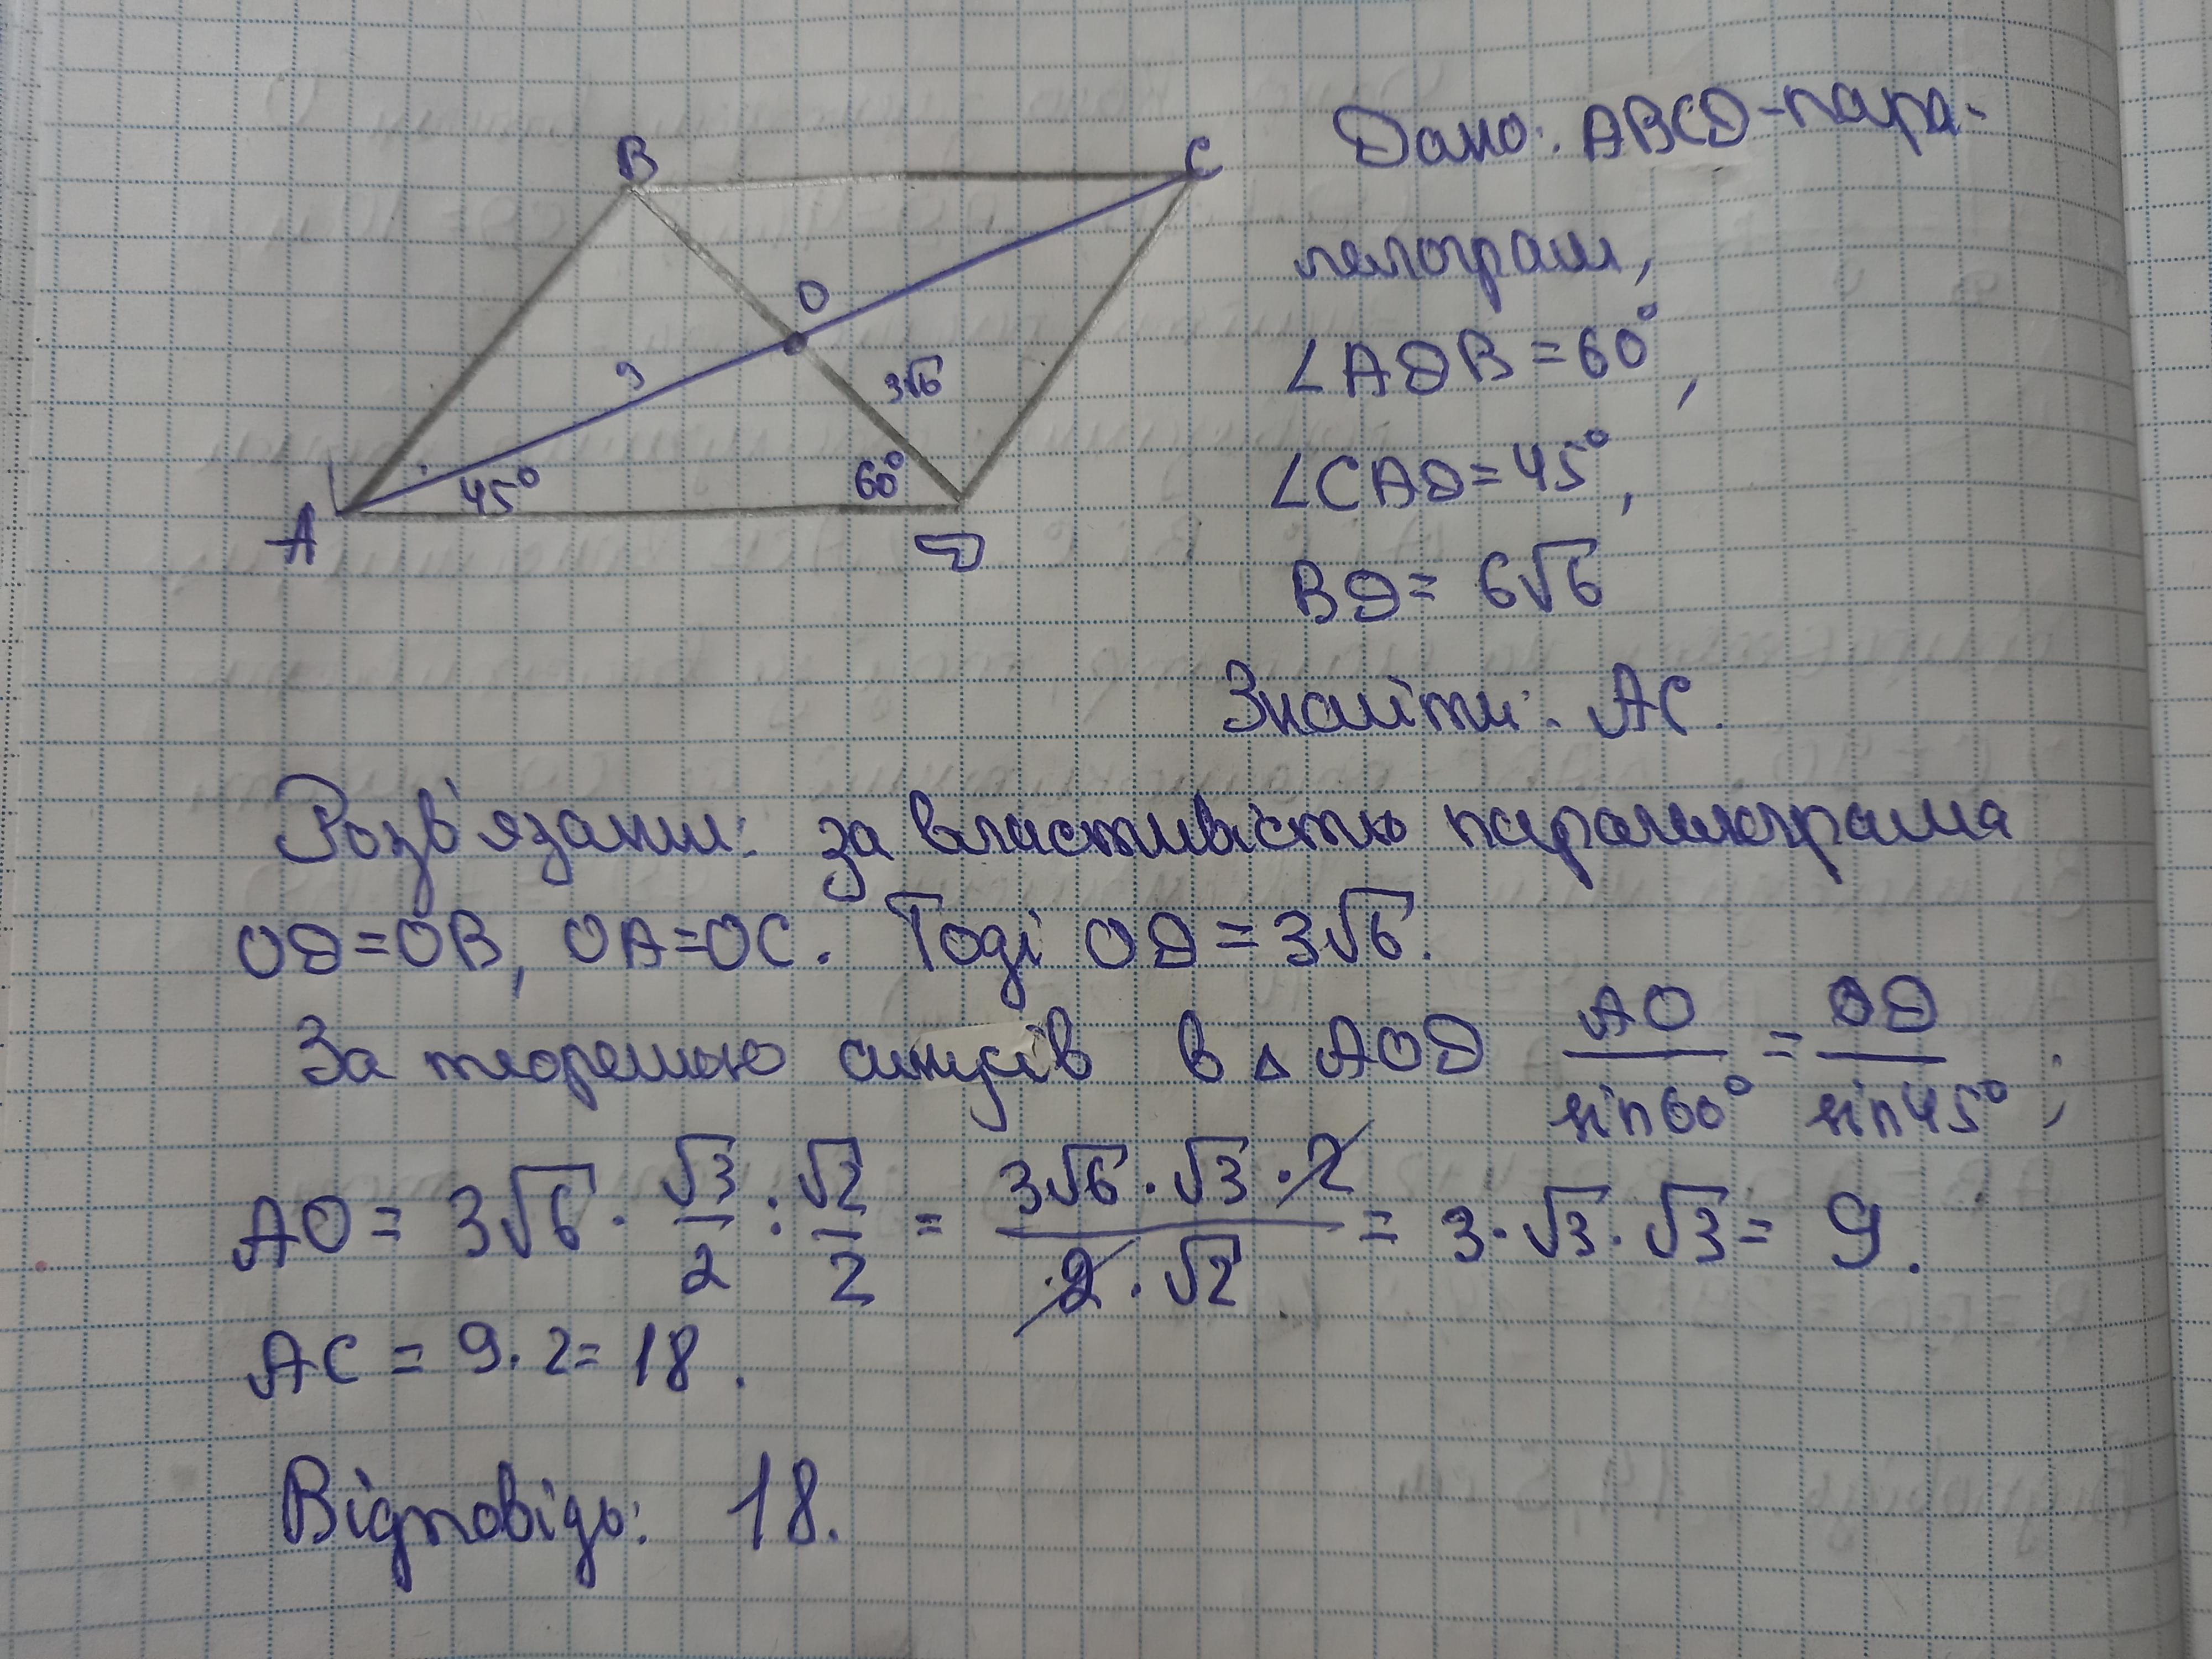 B
C
O
9
3√6
45°
60°
A
D
Дано: ABCD-пара-
лелограм,
∠ADB = 60°,
∠CAD = 45°,
BD = 6√6
Знайти: AC.
Розв'язання: за властивістю паралелограма
OD=OB, OA=OC. Тоді OD = 3√6.
За теоремою синусів в △ AOD AO/sin60° = OD/sin45°;
AO = 3√6 · √3/2 : √2/2 = 3√6·√3·2/2·√2 = 3·√3·√3 = 9.
AC = 9·2 = 18.
Відповідь: 18.